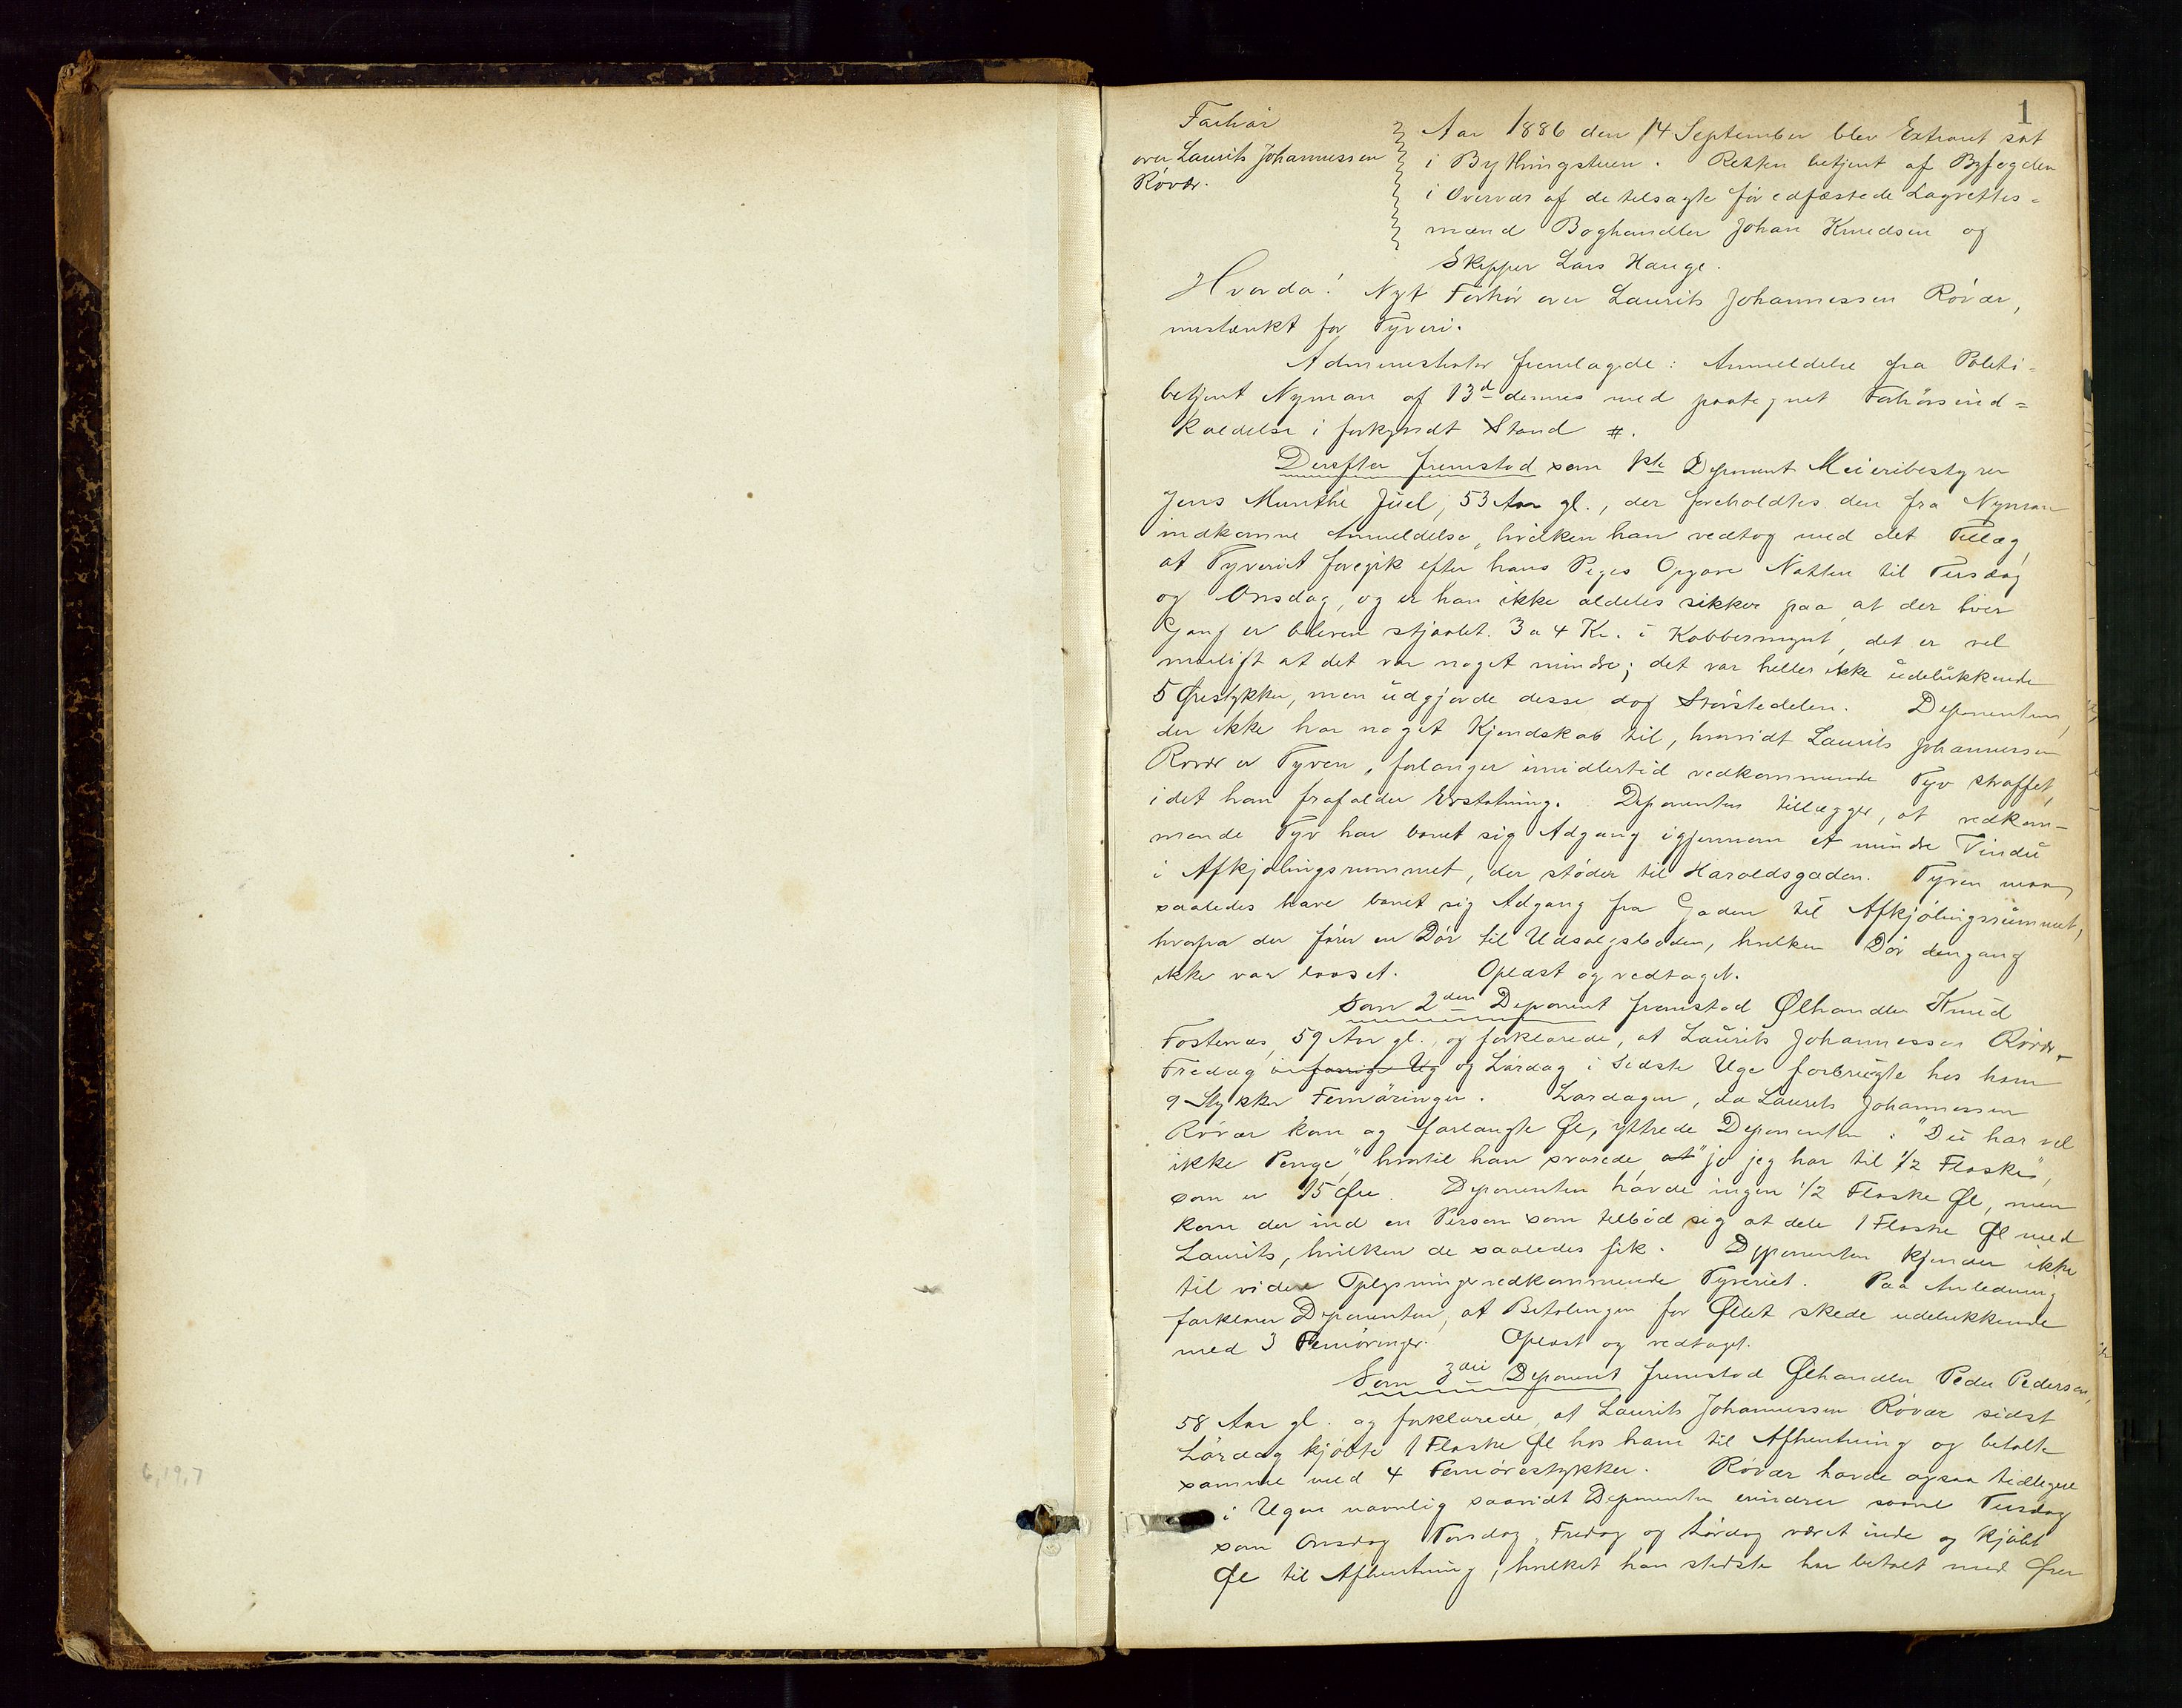 1
Forhör
over Laurits Johannessen
Röver.
Aar 1886 den 14 September blev Extraret sat
i Bythingstuen. Retten betjent af Byfogden
i Overvær af de tilsagte för edfæstede Lagrettes=
mænd Boghandler Johan Knudsen og
Skipper Lars Hauge.
Hvorda! Nyt Forhör over Laurits Johannessen Rövær,
mistænkt for Tyveri.
Administrator fremlagde: Anmeldelse fra Politi=
betjent Nyman af 13d dennes med paategnet Forhörsind=
kaldelse i forkyndt Stand #.
Derefter fremstod som 1ste Deponent Meieribestyrer
Jens Munthe Juel, 53 Aar gl., der foreholdtes den fra Nyman
indkomne Anmeldelse, hvilken han vedtog med det Tillæg,
at Tyveriet foregik efter hans Piges Opgave Natten til Tirsdag
og Onsdag, og er han ikke aldeles sikker paa, at der hver
Gang er bleven stjaalet 3 a 4 Kr. i Kobbermynt, det er vel
muligt at det var noget mindre; det var heller ikke udelukkende
5 Örestykker, men udgjorde disse dog Störstedelen. Deponenten,
der ikke har noget Kjendskab til, hvorvidt Laurits Johannessen
Rövær er Tyven, forlanger imidlertid vedkommende Tyv straffet,
idet han frafalder Erstatning. Deponenten tillægger, at vedkom-
mende Tyv har banet sig Adgang igjennem et mindre Vindu
i Afkjölingsrummet, der stöder til Haraldsgaden. Tyven maa
saaledes have banet sig Adgang fra Gaden til Afkjölingsrummet,
hvorfra der förer en Dör til Udsalgsboden, hvilken Dör dengang
ikke var laaset. Oplæst og vedtaget.
Som 2den Deponent fremstod Ölhandler Knud
Fostenæs, 59 Aar gl., og forklarede, at Laurits Johannessen Rövær
Fredag i forrige Ug og Lördag i sidste Uge forbrugte hos ham
9 Stykker Femöringer. Lördagen, da Laurits Johannessen
Rövær kom og forlangte Öl, yttrede Deponenten: "Du har vel
ikke Penge," hvortil han svarede, at "jo jeg har til 1/2 Flaske",
som er 15 Öre. Deponenten havde ingen 1/2 Flaske Öl, men
kom der ind en Person som tilböd sig at dele 1 Flaske Öl med
Laurits, hvilken de saaledes fik. Deponenten kjender ikke
til videre Oplysninger vedkommende Tyveriet. Paa Anledning
forklarer Deponenten, at Betalingen for Öllet skede udelukkende
med 3 Femöringer. Oplæst og vedtaget.
Som 3die Deponent fremstod Ölhandler Peder Pedersen,
58 Aar gl. og forklarede, at Laurits Johannessen Rövær sidst
Lördag kjöbte 1 Flaske Öl hos ham til Afhentning og betalte
samme med 4 Femörestykker. Rövær havde ogsaa tidligere
i Ugen navnlig saavidt Deponenten erindrer saavel Tirsdag
som Onsdag Torsdag, Fredag og Lördag været inde og kjöbt
Öl til Afhentning, hvilket han stedste har betalt med Öre
6,19,7